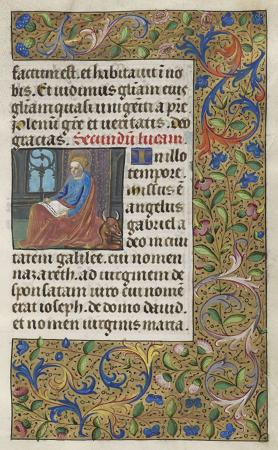 factum est. et habitauit in no
bis. Et uidimus gl̄am eius
gl̄iam quasi unigeniti a p̄re
plenum gr̄e et ueritatis. deo
gracias. Secundū lucam
In illo
tempore.
missus ē
angelus
gabriel a
deo in ciui
tatem galilee. cui nomen
nazareth. ad uirginem de
sponsatam uiro cui nomē
erat ioseph. de domo dauid.
et nomen uirginis maria.